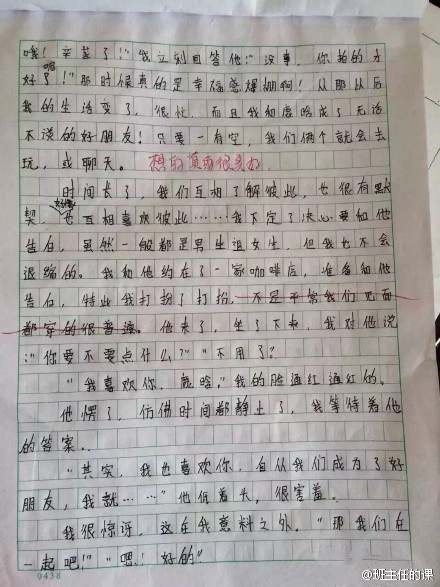 哦！辛苦了！"我立刻回答他"没事，你拍的才
好了喔！"那时候真的是幸福感爆棚啊！从那从后
我的生活变了，很忙，而且我和鹿晗成了无话
不说的好朋友！只要一有空，我们俩个就会去
玩，或聊天。 想的真有很美好
时间长了，我们互相了解彼此，也很有默
契，好像也互相喜欢彼此……我下定了决心要和他
告白，虽然一般都是男生追女生，但我也不会
退缩的。我和他约在了一家咖啡店，准备和他
告白，特此我打扮了打扮，不是平常我们见面
都穿的很普通。他来了，坐了下来，我对他说
："你要不要点什么？""不用了？
"我喜欢你，鹿晗，"我的脸通红通红的。
他愣了，仿佛时间都静止了，我等待着他
的答案。
"其实，我也喜欢你，自从我们成为了好
朋友，我就……"他低着头，很害羞。
我很惊讶，这在我意料之外。"那我们在
一起吧！""嗯！好的"
0438
@班主任的课